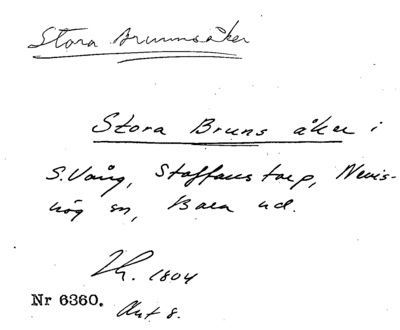 Stora Brunnsåker
Stora Bruns åker i
S. Vång, Staffanstorp, Nevis-
hög sn, Bara hd.
Lh. 1804
Nr 6360.
Akt 8.